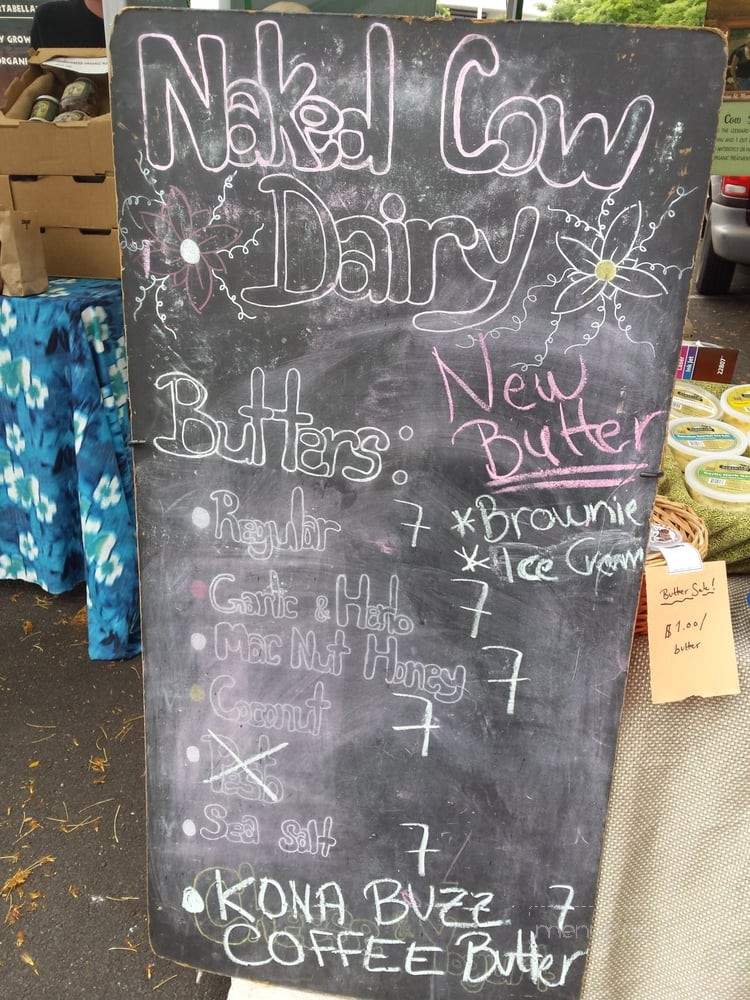 Naked Cow
Dairy
Butters:
New
Butter
• Regular 7
* Brownie
* Ice Cream
• Garlic & Herb 7
• Mac Nut Honey 7
• Coconut 7
• Sea Salt 7
• KONA BUZZ 7
COFFEE Butter
Butter Sale!
$1.00/
butter
Cow
22807
menu